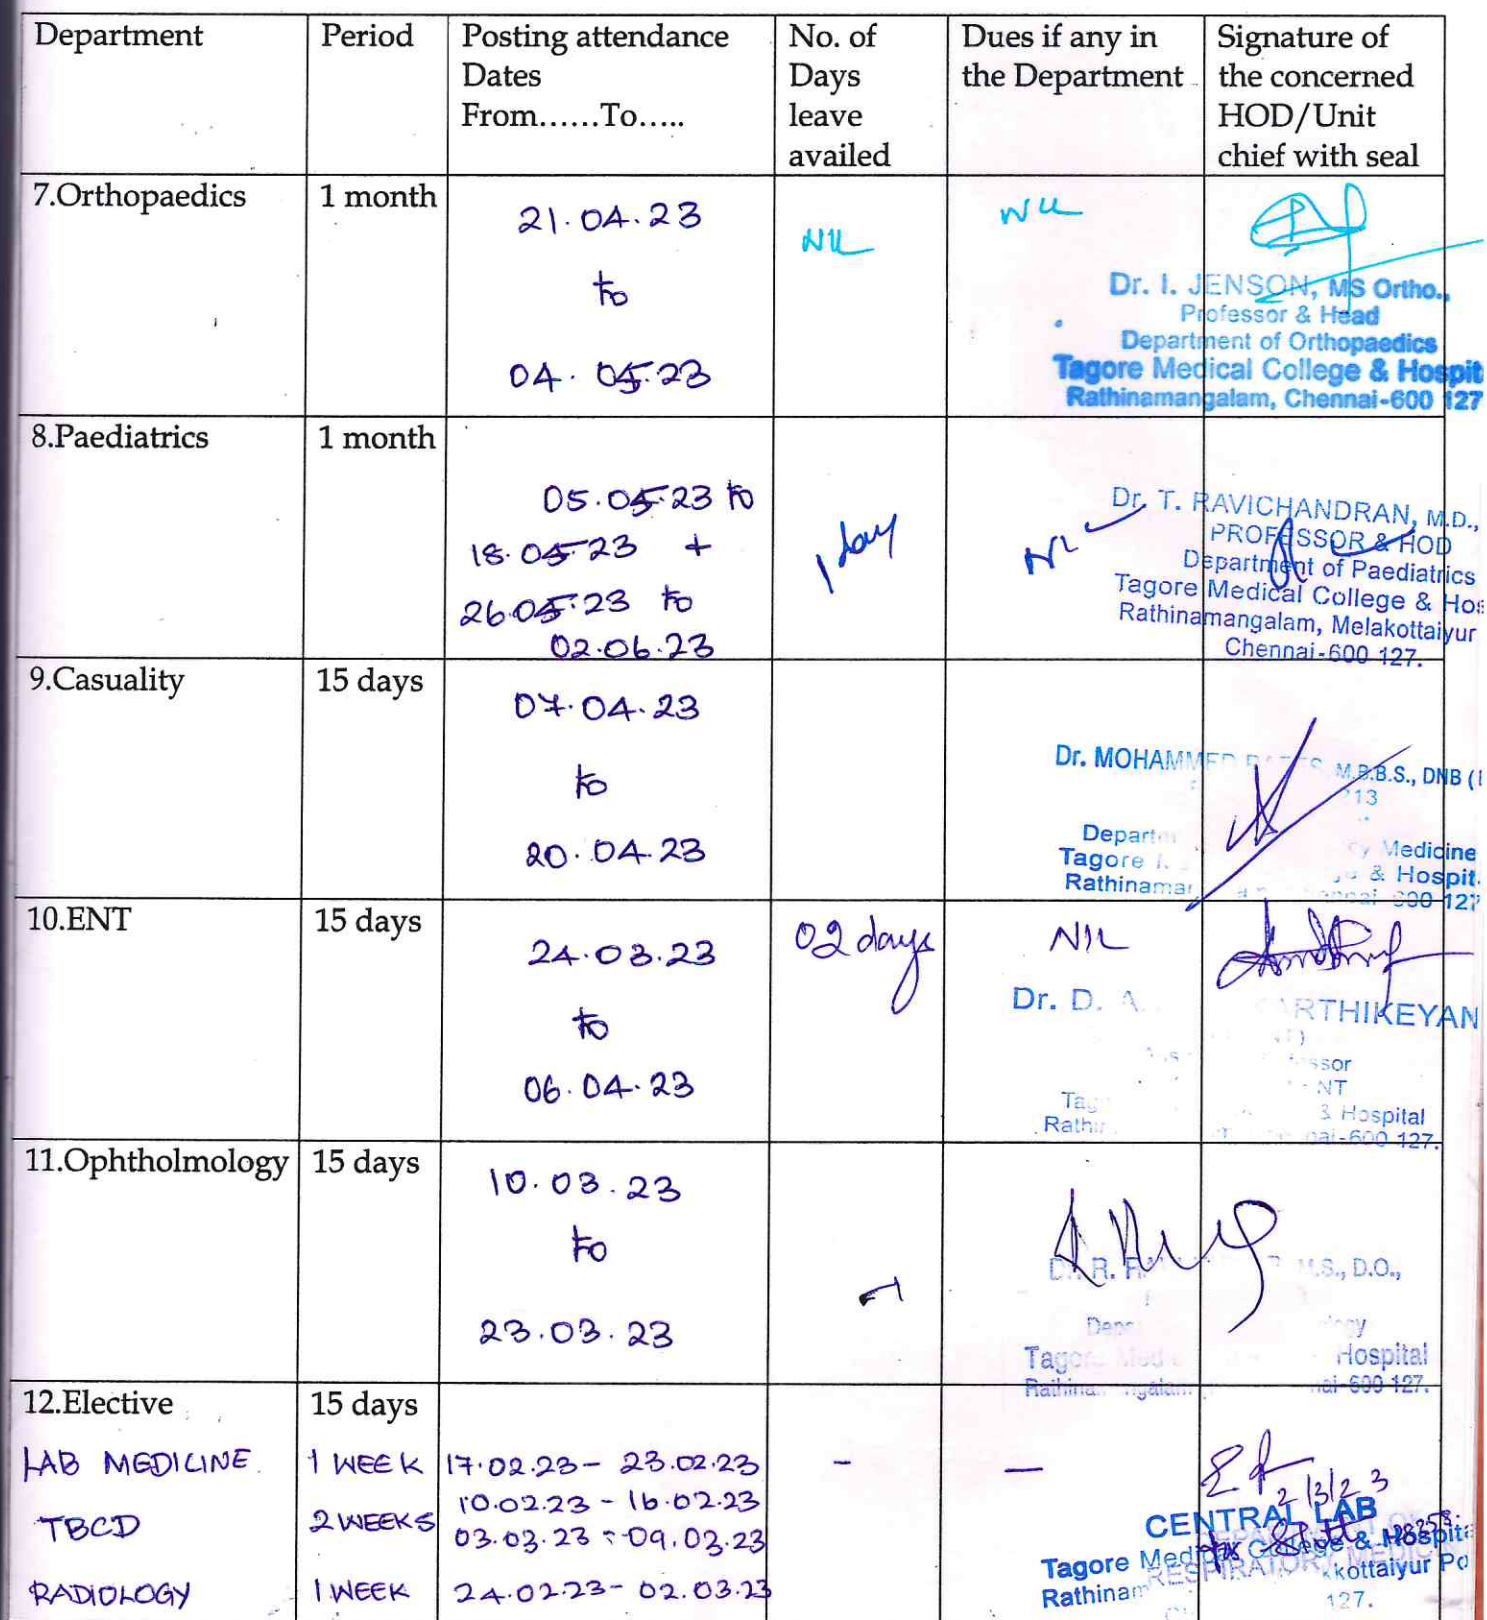 Department
Period
Posting attendance
Dates
From......To.....
No. of
Days
leave
availed
Dues if any in
the Department
Signature of
the concerned
HOD/Unit
chief with seal
7.Orthopaedics
1 month
21.04.23
to
04.05.23
NIL
NIL
Dr. I. JENSON, MS Ortho.,
Professor & Head
Department of Orthopaedics
Tagore Medical College & Hospit
Rathinamangalam, Chennai-600 127
8.Paediatrics
1 month
05.05.23 to
18.05.23 +
26.05.23 to
02.06.23
1 day
NIL
Dr. T. RAVICHANDRAN, M.D.,
PROFESSOR & HOD
Department of Paediatrics
Tagore Medical College & Hos
Rathinamangalam, Melakottaiyur
Chennai-600 127.
9.Casuality
15 days
07.04.23
to
20.04.23
Dr. MOHAMMED M.B.B.S., DNB (
213
Depart Medicine
Tagore & Hospit
Rathinama 600 127
10.ENT
15 days
24.03.23
to
06.04.23
02 days
NIL
Dr. D. A. ARTHIKEYAN
ssor
NT
& Hospital
Rathi nai-600 127.
11.Ophtholmology
15 days
10.03.23
to
23.03.23
Dr. R. M.S., D.O.,
Dep logy
Tagore Med Hospital
Rathina ngalam nai-600 127.
12.Elective
15 days
LAB MEDICINE
1 WEEK
17.02.23 - 23.02.23
-
-
TBCD
2 WEEKS
10.02.23 - 16.02.23
03.03.23 - 09.03.23
RADIOLOGY
1 WEEK
24.02.23 - 02.03.23
2/3/23
CENTRAL LAB
Tagore Medical College & Hospita
RESPIRATORY MEDICIN
Rathinam kottaiyur Po
127.